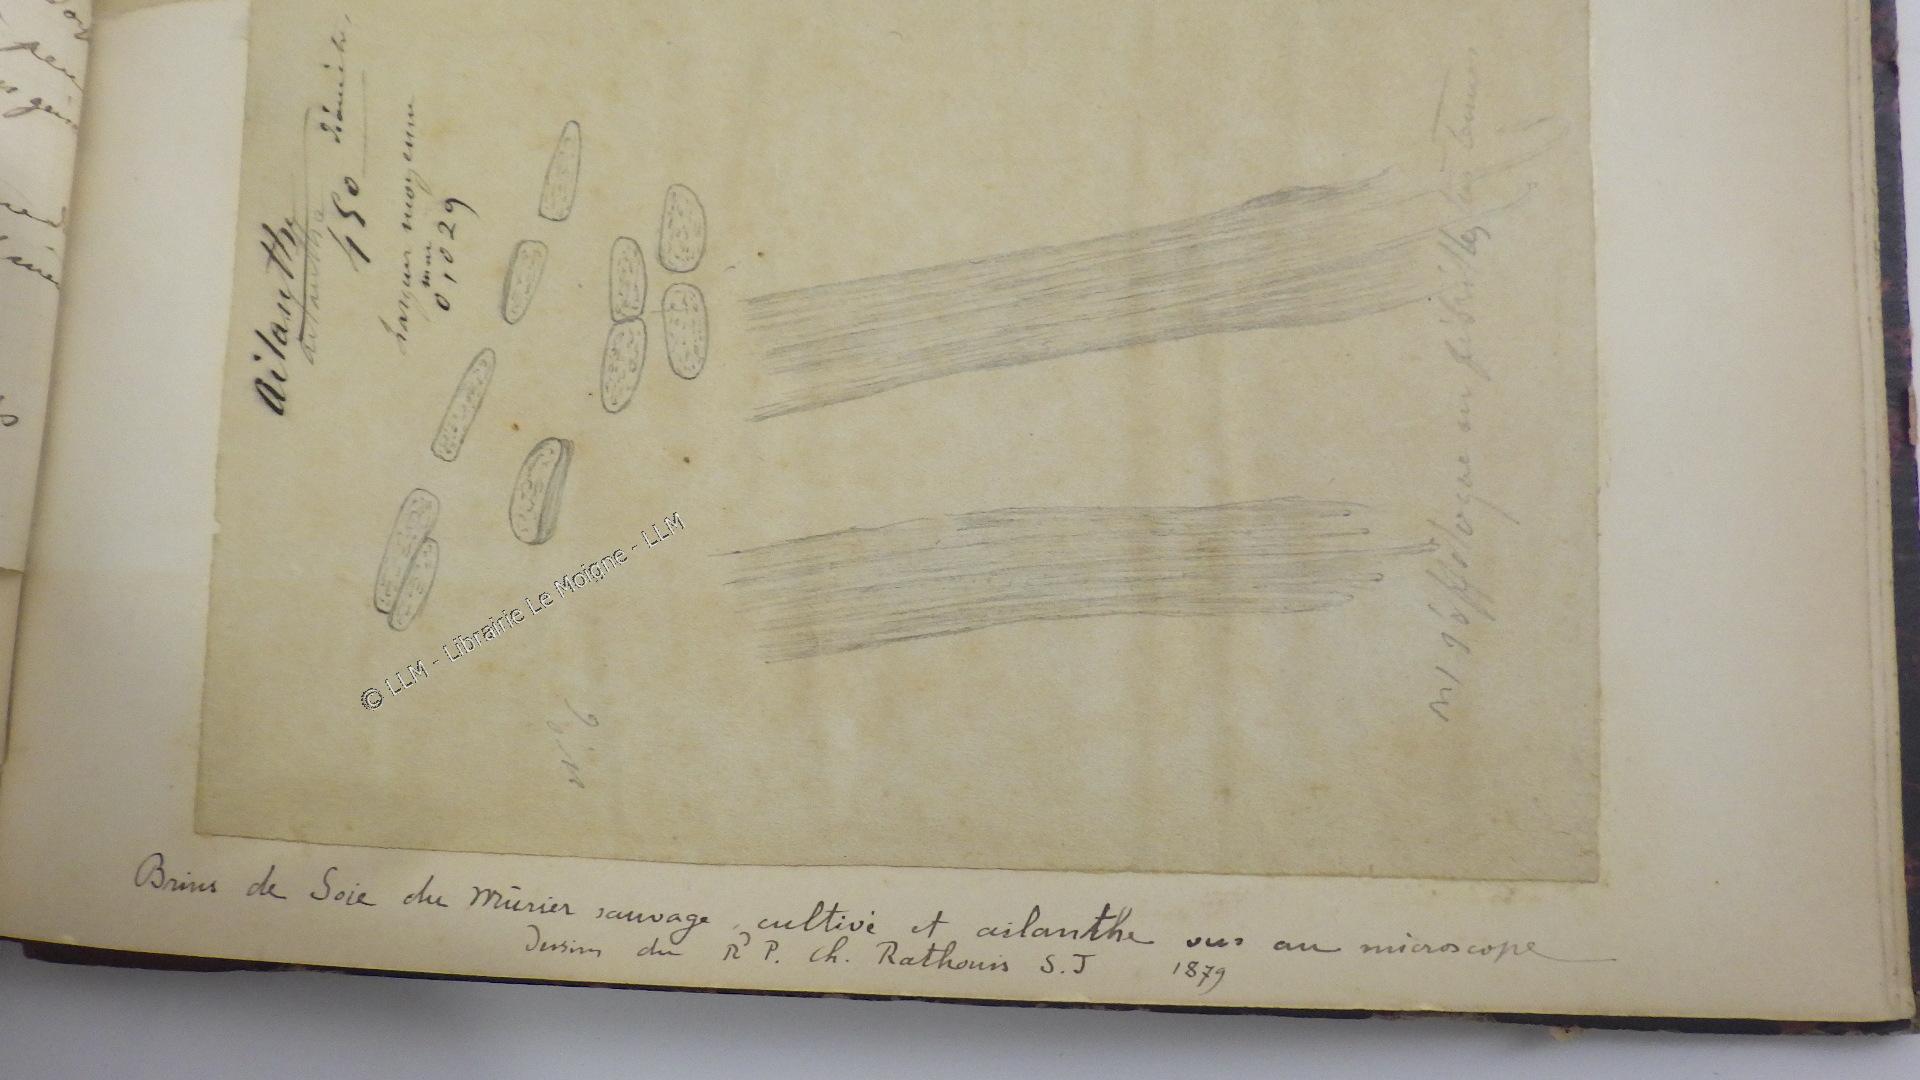 Ailanthe
ailanthe
450 diamètr.
Largeur moyenne
mm
0,029
N° 9
N° 9 éffiloqué en fibrilles
© LLM - Librairie Le Moigne - LLM
Brins de Soie du Mûrier sauvage, cultivé et ailanthe vus au microscope
Dessins du R P. Ch. Rathouis S.J 1879